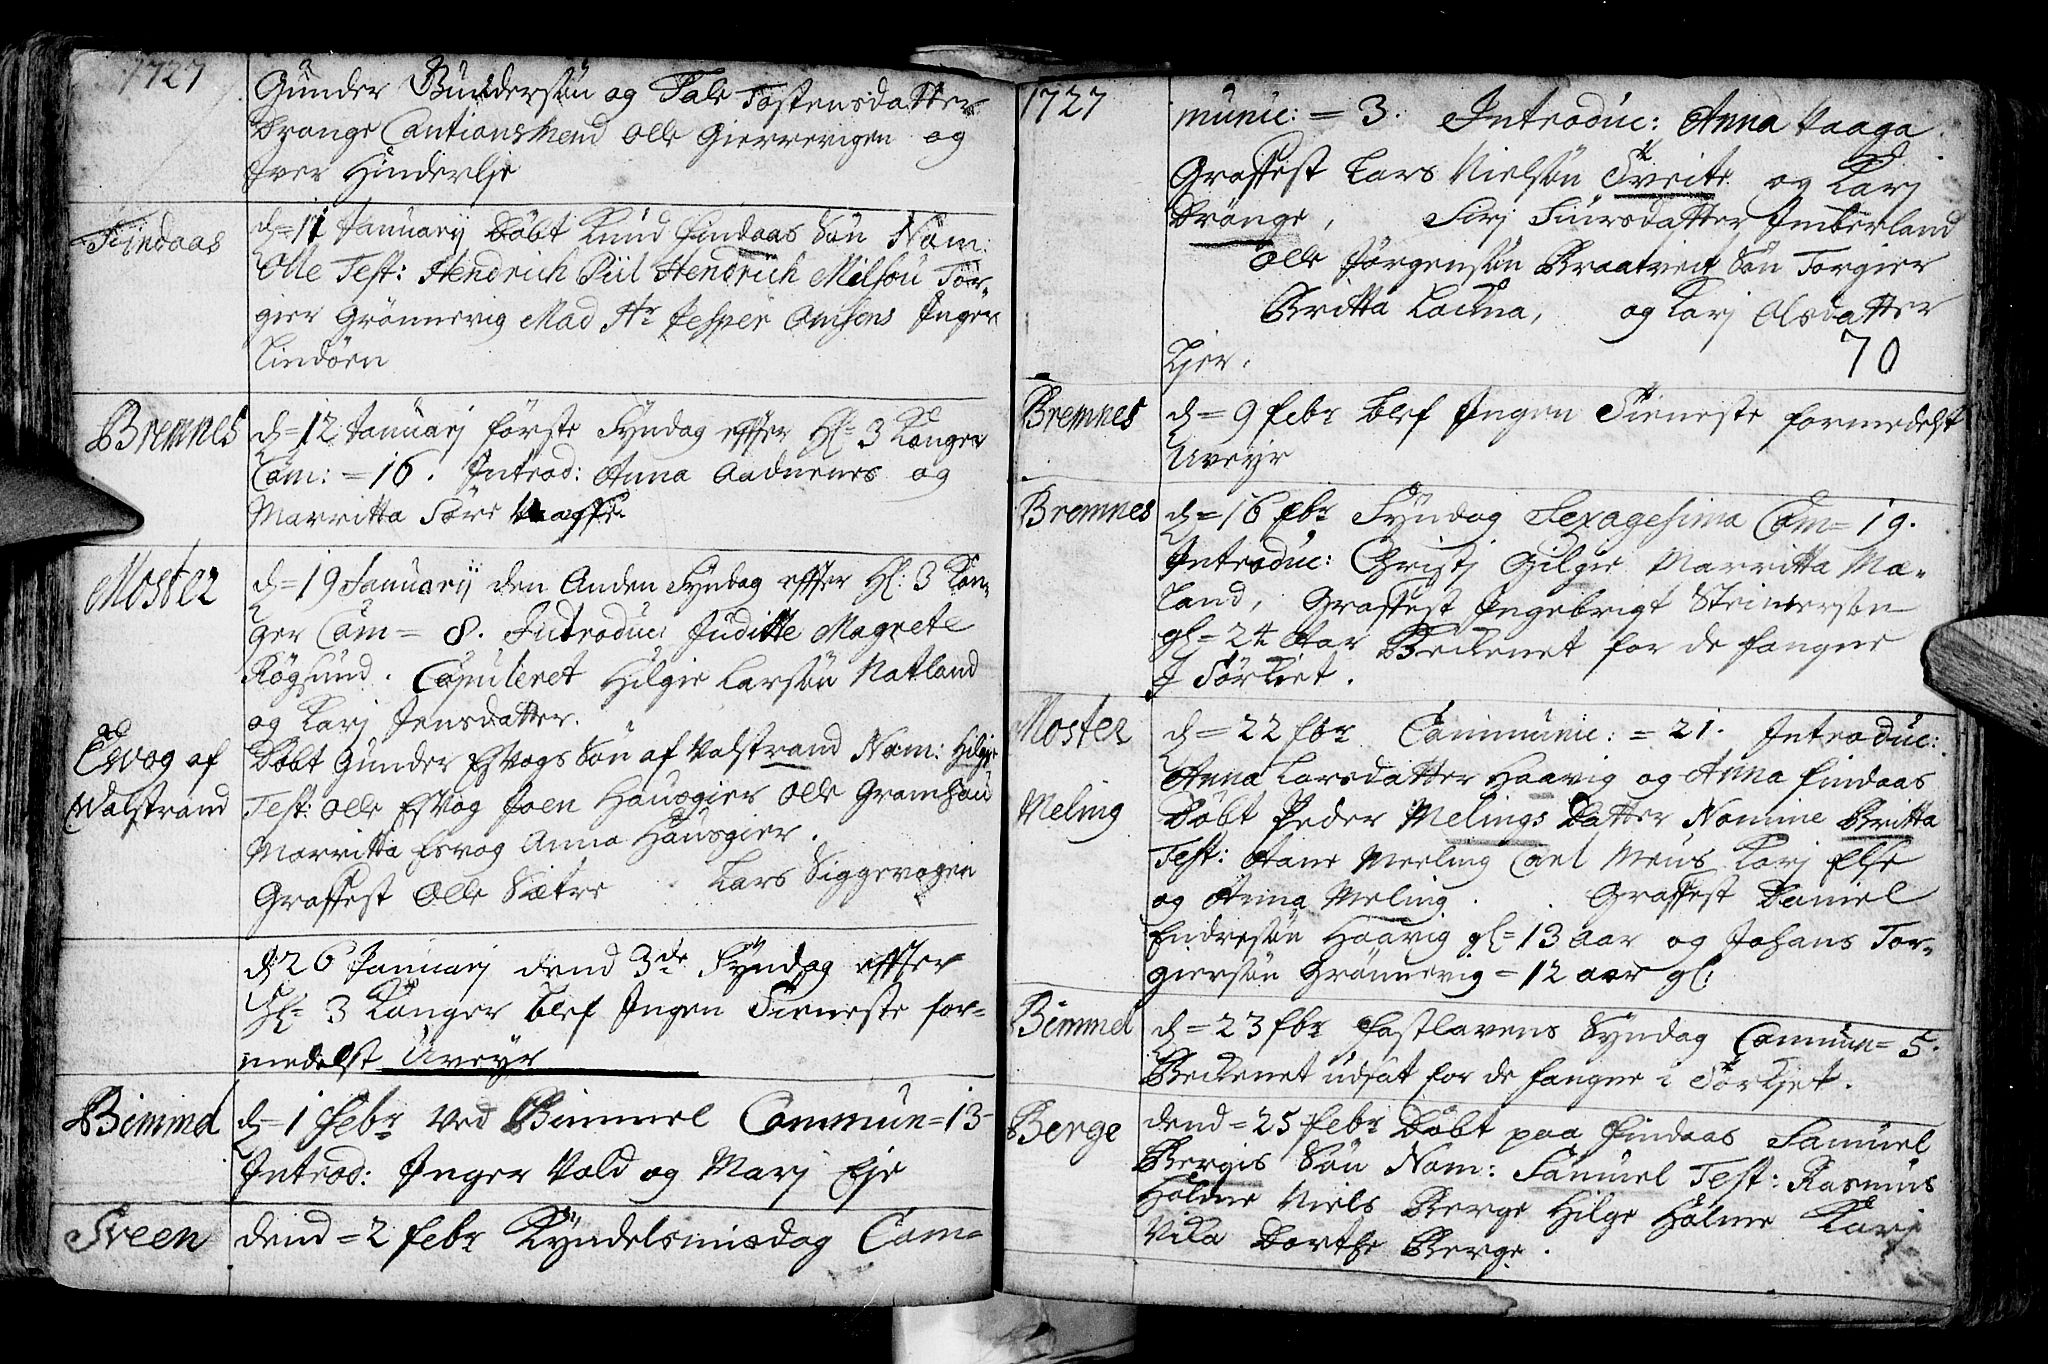 1727
Gunder Gundersøn og Tale Tostensdatter
Drange Cautionsmend Olle Gierrevigen og
Iver Hinderlje
Findaas
d= 11 Januarij Döbt Knud Findaas Sön Nom:
Olle Test: Hendrich Piil Hendrich Milsou Tor-
gier Grönnevig Mad Hr Jesper Inger
Lindöen
Bremnes
d= 12 Januarj förste Syndag effter Hl= 3 Konger
Com: = 16. Introd: Anna Aadnenes og
Marritta Söre Vaage.
Moster
d= 19 Januarij den Anden Syndag effter Hl: 3 Kon-
ger Com= 8. Introduc: Juditte Magrete
Rögsund. Copuleret Hilgie Larsön Natland
og Karj Jensdatter.
Esvog af
Valstrand
Döbt Gunder Esvogs Sön af Valstrand Nom: Hilgie
Test: Olle Esvog Joen Hausgier Olle Gramshau
Marritta Esvog Anna Hausgier.
Graffest Olle Sætre Lars Siggevogen
d 26 Januarj dend 3de Syndag effter
Hl= 3 Konger blef Ingen Tieneste for-
medelst Uveyr
Bimmel
d= 1 Febr ved Bimmel Commun= 13
Introd: Inger Vold og Marj Eje
Sveen
dend= 2 Febr Kyndelsmisdag Com-
1727
munic: = 3. Introduc: Anna Vaaga.
Graffest Lars Nielsön Tveite og Karj
Drange, Sirj Siursdatter Imberland
Olle Jörgensön Braatveit Sön Torgier
Britta Lackna, og Karj Olsdatter
Kier.
70
Bremnes
d= 9 Febr blef Ingen Tieneste formedelst
Uveyr
Bremnes
d= 16 Fbr Syndag Sexagesima Com= 19.
Introduc: Christj Gilgie Marritta Mæ-
land, Graffest Ingebrigt Steinersön
gl= 24 Aar Beckenet for de fangne
I Törkiet.
Moster
d= 22 Fbr Communic: = 21. Introduc:
Anna Larsdatter Haavig og Anna Findaas
Meling
Döbt Peder Melings Datter Nomine Britta
Test: Aane Meeling Carl Meus Karj Else
og Anna Meling. Graffest Daniel
Endresön Haavig gl= 13 aar og Johans Tor-
giersön Grönnevig= 12 aar gl:
Bimmel
d= 23 Fbr Fastlavens Syndag Commun= 5.
Beckenet udsat for de fangne i Törkjet.
Berge
dend= 25 Febr Döbt paa Findaas Samuel
Bergis Sön Nom: Samuel Test: Rasmus
Holme Niels Berge Hilge Holme Karj
Vika Dorthe Berge.